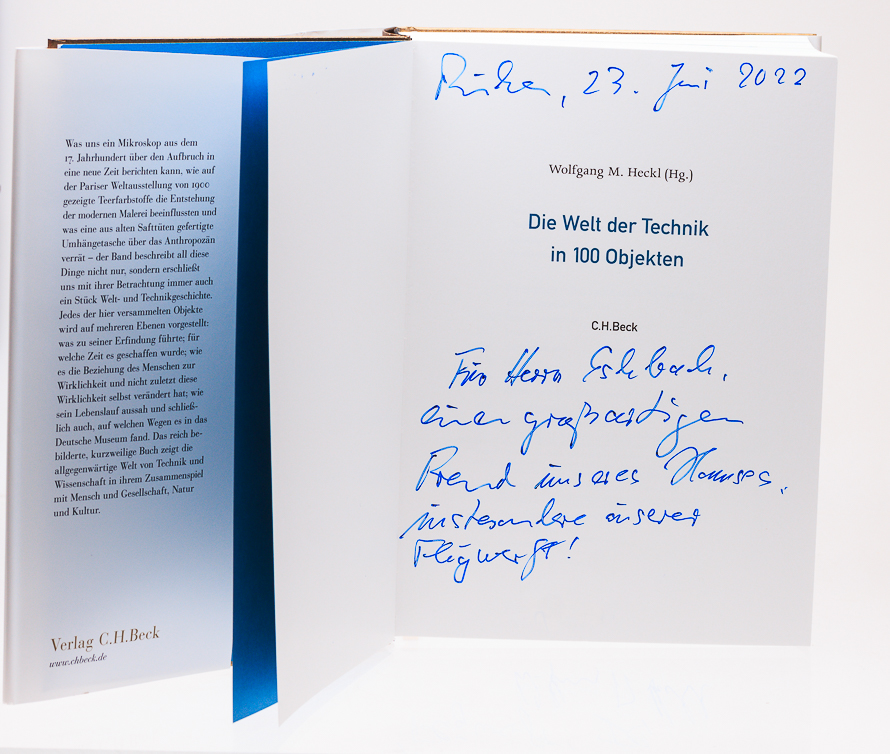 Was uns ein Mikroskop aus dem
17. Jahrhundert über den Aufbruch in
eine neue Zeit berichten kann, wie auf
der Pariser Weltausstellung von 1900
gezeigte Teerfarbstoffe die Entstehung
der modernen Malerei beeinflussten und
was eine aus alten Safttüten gefertigte
Umhängetasche über das Anthropozän
verrät – der Band beschreibt all diese
Dinge nicht nur, sondern erschließt
uns mit ihrer Betrachtung immer auch
ein Stück Welt- und Technikgeschichte.
Jedes der hier versammelten Objekte
wird auf mehreren Ebenen vorgestellt:
was zu seiner Erfindung führte; für
welche Zeit es geschaffen wurde; wie
es die Beziehung des Menschen zur
Wirklichkeit und nicht zuletzt diese
Wirklichkeit selbst verändert hat; wie
sein Lebenslauf aussah und schließ-
lich auch, auf welchen Wegen es in das
Deutsche Museum fand. Das reich be-
bilderte, kurzweilige Buch zeigt die
allgegenwärtige Welt von Technik und
Wissenschaft in ihrem Zusammenspiel
mit Mensch und Gesellschaft, Natur
und Kultur.
Verlag C.H.Beck
www.chbeck.de
, 23. Juni 2022
Wolfgang M. Heckl (Hg.)
Die Welt der Technik
in 100 Objekten
C.H.Beck
Für Herrn Eschbach,
einen großartigen
Freund unseres Hauses,
insbesondere unserer
Flugwerft!